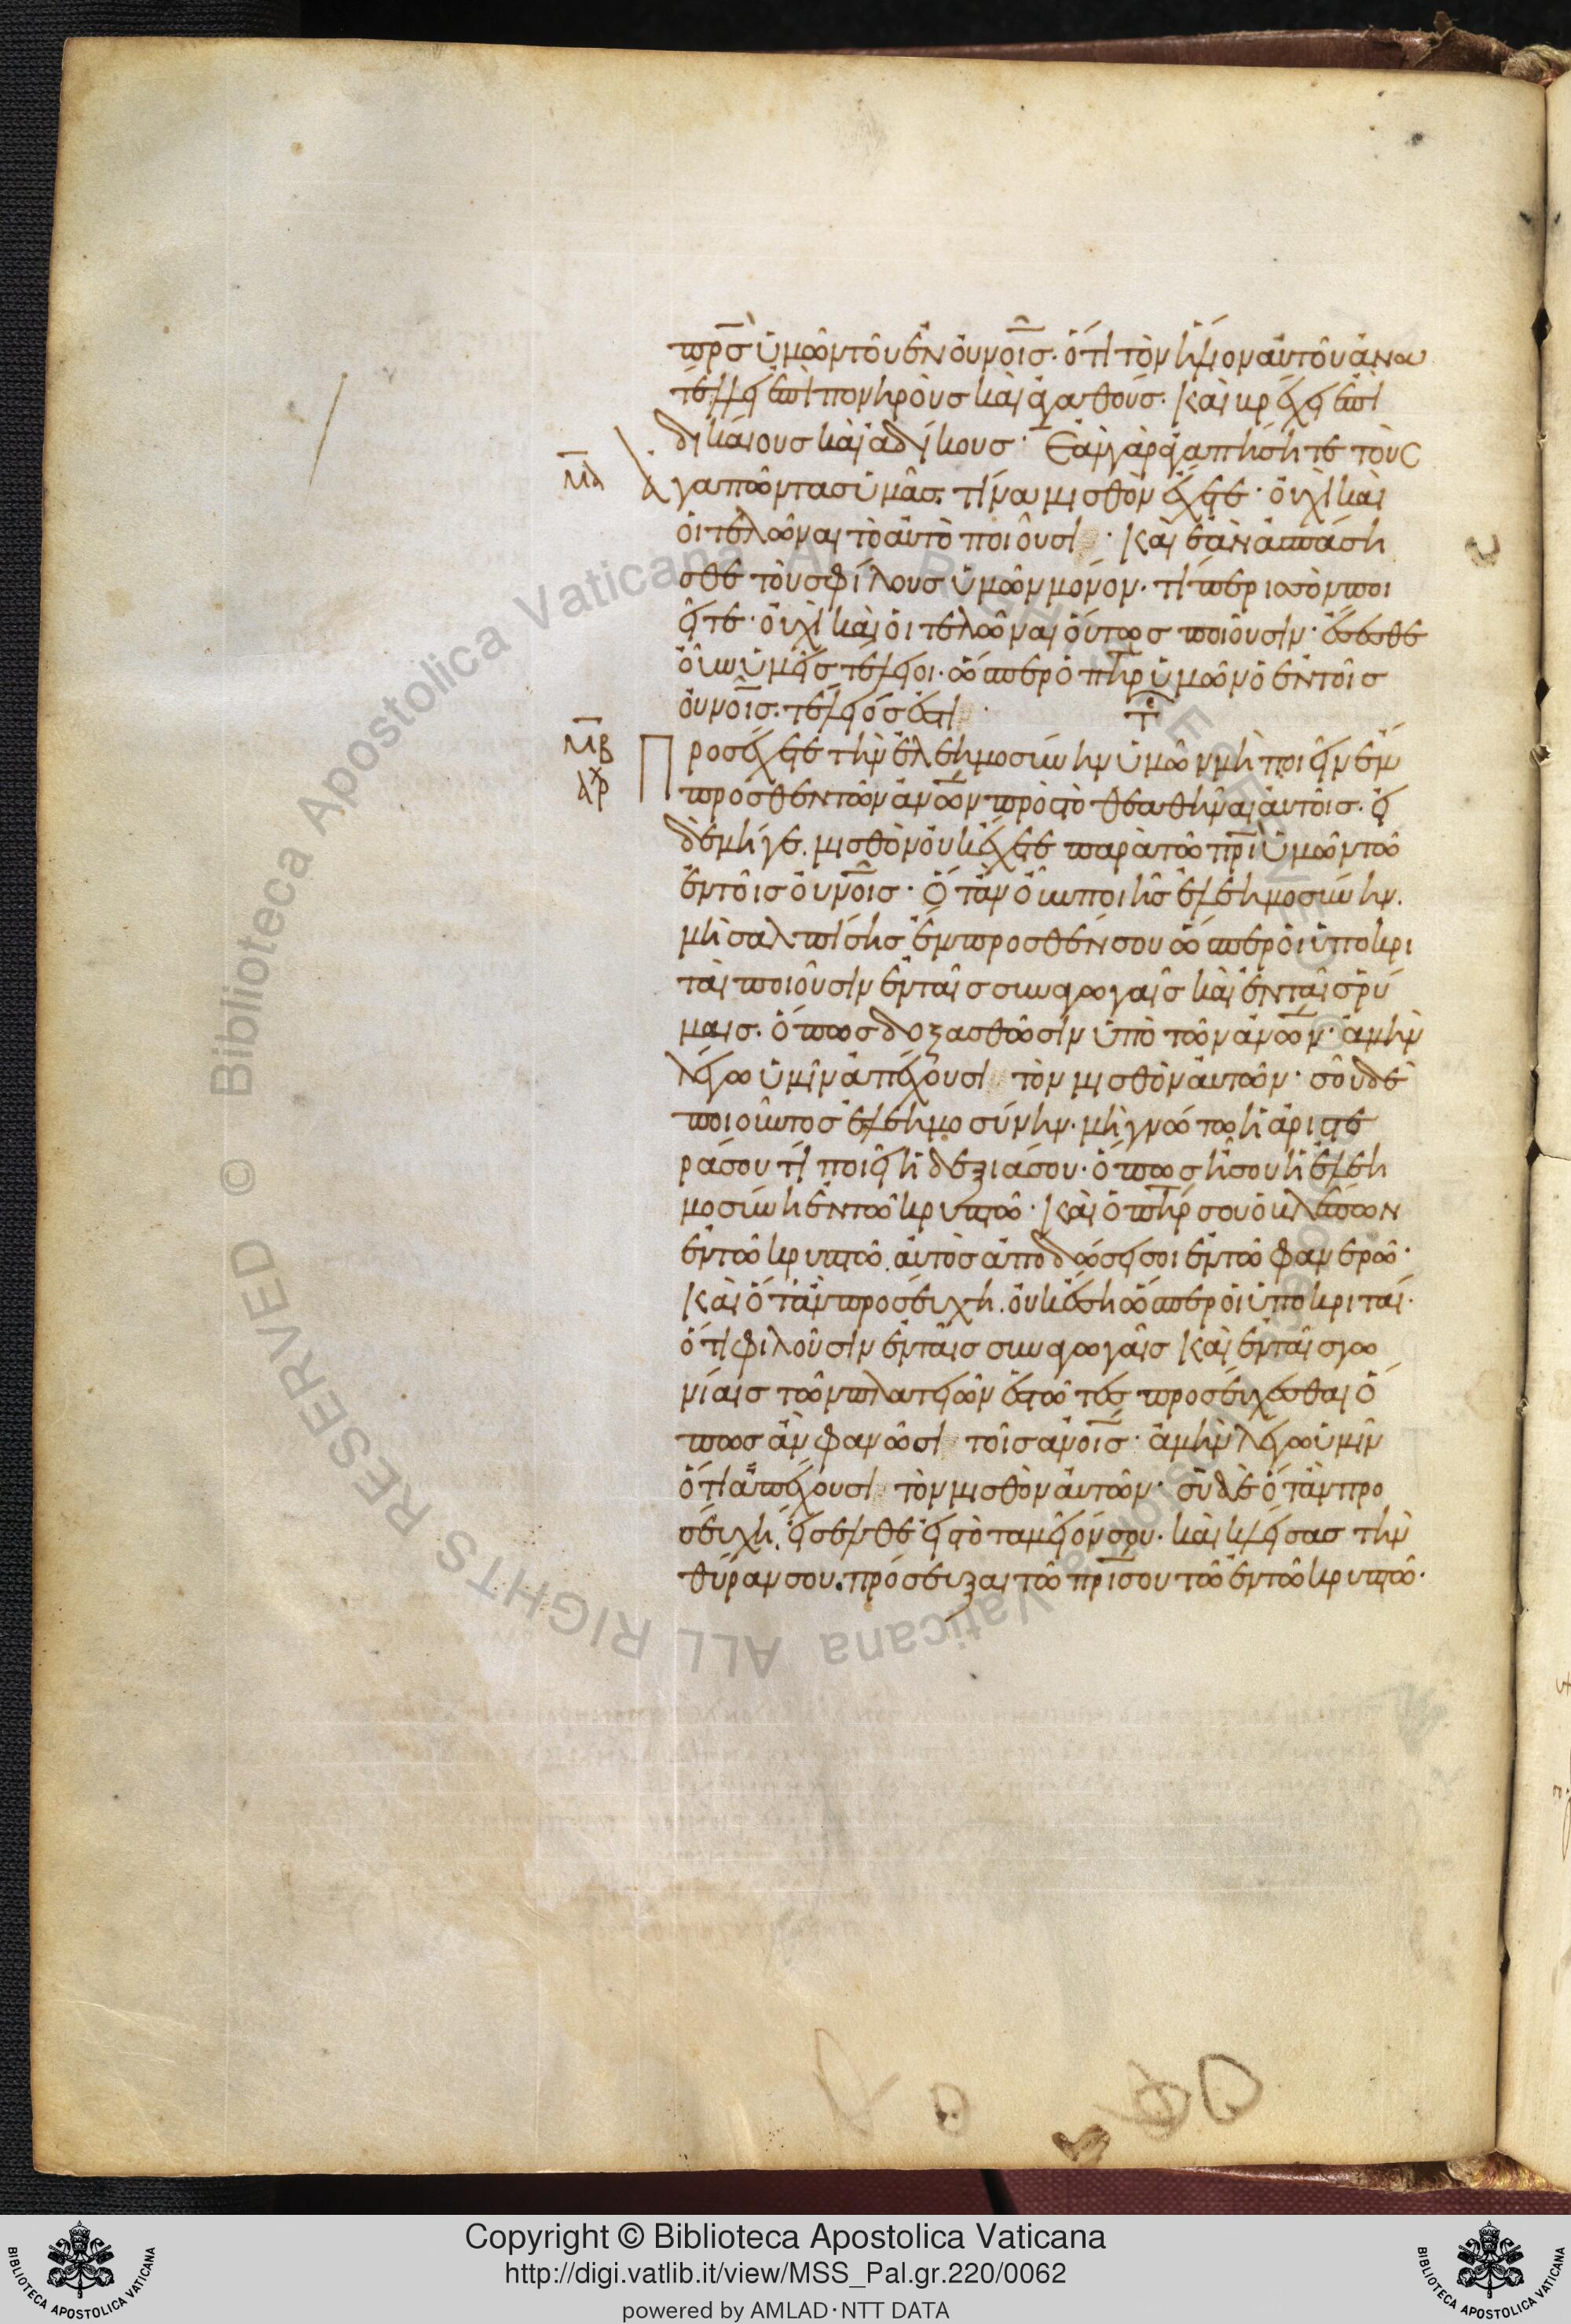 πρ̅σ ὑμῶν τοῦ ἐν οὐνοι̅σ. ὅτι τὸν ἥλιον αὐτοῦ ἀνα
τέλλει ἐπὶ πονηροὺσ καὶ ἀγαθούσ. καὶ βρέχει ἐπὶ
δικαίουσ καὶ ἀδίκουσ· Ἐὰν γὰρ ἀγαπήσητε τοὺσ
μα ἀγαπῶντασ ὑμᾶσ. τίνα μισθὸν ἔχετε· οὐχὶ καὶ
οἱ τελῶναι τὸ αὐτὸ ποιοῦσι· καὶ ἐὰν ἀσπάση
σθε τοὺσ φίλουσ ὑμῶν μόνον. τί περισσὸν ποι
εῖτε· οὐχὶ καὶ οἱ τελῶναι οὕτωσ ποιοῦσιν· ἔσεσθε
οὖν ὑμεῖσ τέλειοι. ὥσπερ ὁ πη̅ρ ὑμῶν ὁ ἐν τοῖσ
οὐνοι̅σ. τέλειόσ ἐστι·
μβ Προσέχετε τὴν ἐλεημοσύνην ὑμῶν μὴ ποιεῖν ἔμ
αρχ προσθεν τῶν ἀνω̅ν πρὸσ τὸ θεαθῆναι αὐτοῖσ. εἰ
δὲ μήγε. μισθὸν οὐκ ἔχετε παρὰ τῶ πρι̅ ὑμῶν τῶ
ἐν τοῖσ οὐνοι̅σ· Ὅταν οὖν ποιῆσ ἐλεημοσύνην.
μὴ σαλπίσησ ἔμπροσθέν σου ὥσπερ οἱ ὑποκρι
ταὶ ποιοῦσιν ἐν ταῖσ συναγωγαῖσ καὶ ἐν ταῖσ ῥύ
μαισ. ὅπωσ δοξασθῶσιν ὑπὸ τῶν ἀνω̅ν· ἀμὴν
λέγω ὑμῖν ἀπέχουσι τὸν μισθὸν αὐτῶν· σοῦ δὲ
ποιοῦντοσ ἐλεημοσύνην. μὴ γνώτω ἡ ἀριστε
ρά σου τί ποιεῖ ἡ δεξιά σου. ὅπωσ ἦ σου ἡ ἐλεη
μοσύνη ἐν τῶ κρυπτῶ· καὶ ὁ πη̅ρ σου ὁ βλέπων
ἐν τῶ κρυπτῶ. αὐτὸσ ἀποδώσει σοι ἐν τῶ φανερῶ·
Καὶ ὅταν προσεύχη. οὐκ ἔση ὥσπερ οἱ ὑποκριταί.
ὅτι φιλοῦσιν ἐν ταῖσ συναγωγαῖσ καὶ ἐν ταῖσ γω
νίαισ τῶν πλατειῶν ἑστῶτεσ προσεύχεσθαι ὅ
πωσ ἂν φανῶσι τοῖσ ἀνοι̅σ· ἀμὴν λέγω ὑμῖν
ὅτι ἀπέχουσι τὸν μισθὸν αὐτῶν· σὺ δὲ ὅταν προ
σεύχη, εἴσελθε εἰσ τὸ ταμεῖόν σου. καὶ κλείσασ τὴν
θύραν σου. πρόσευξαι τῶ πρι̅ σου τῶ ἐν τῶ κρυπτῶ.
Copyright © Biblioteca Apostolica Vaticana
http://digi.vatlib.it/view/MSS_Pal.gr.220/0062
powered by AMLAD·NTT DATA